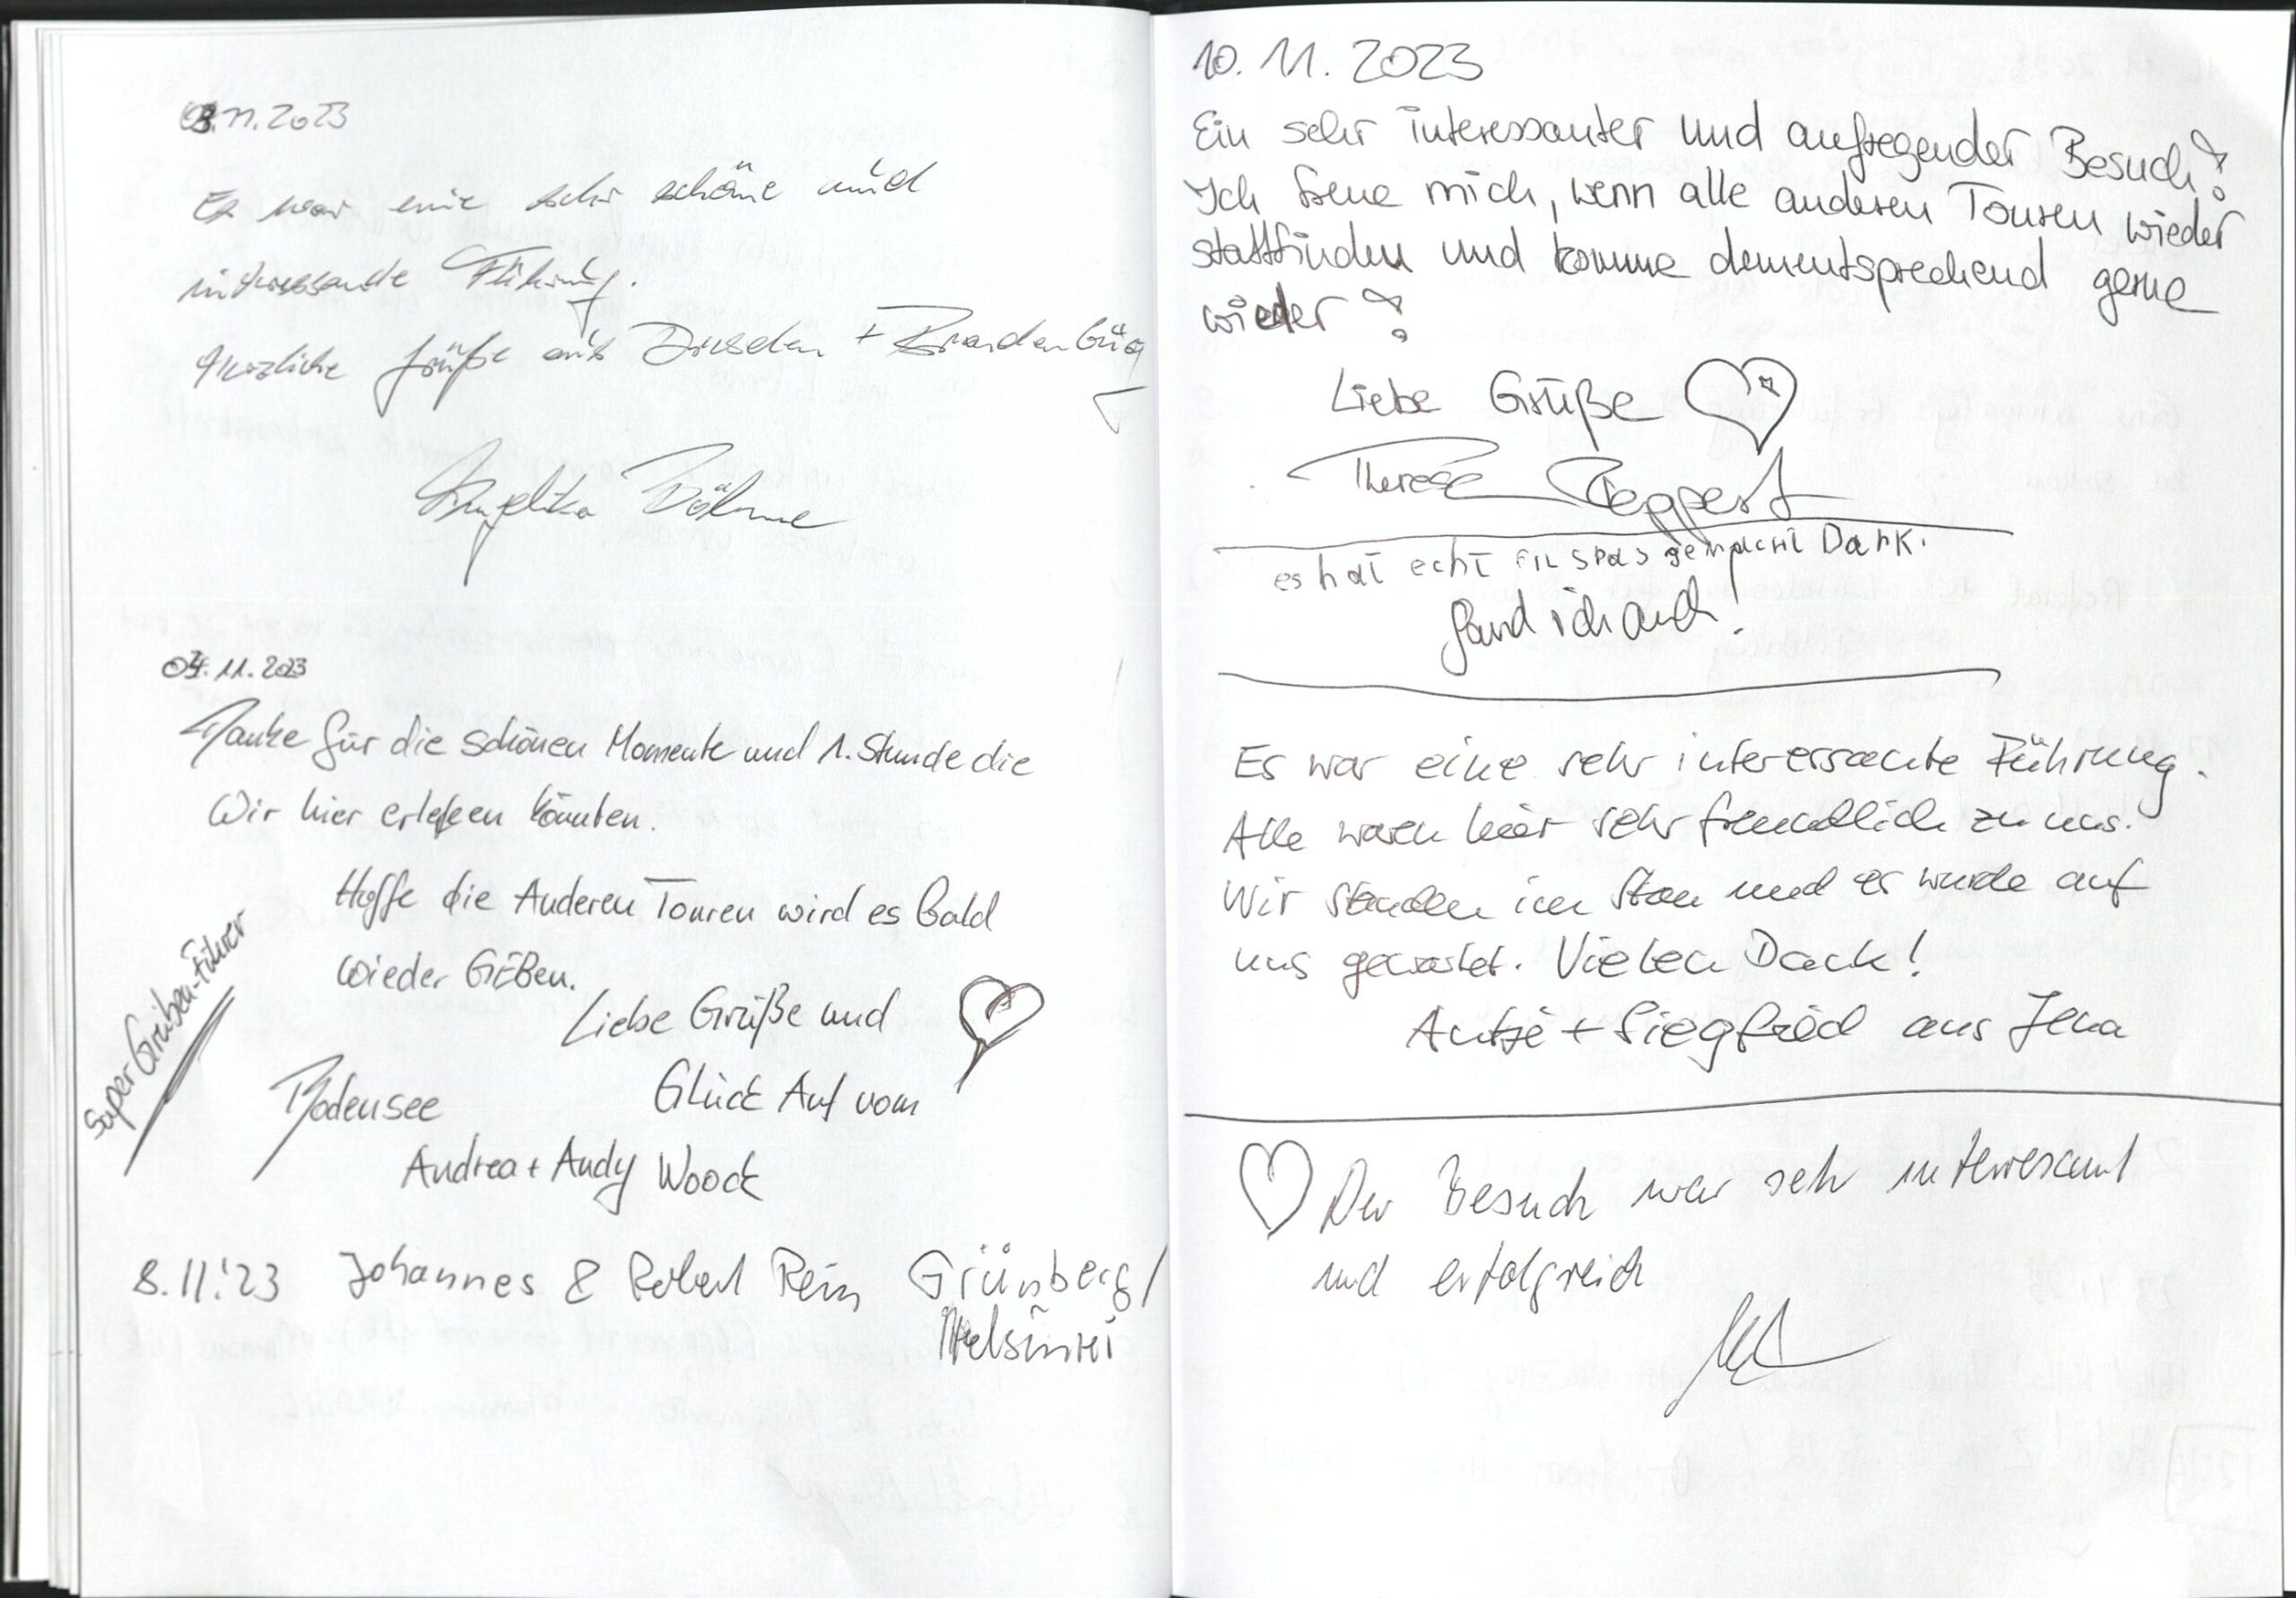 03.11.2023
Es war eine sehr schöne und
interessante Führung.
Herzliche Grüße aus Dresden + Brandenburg
Angelika Böhme
04.11.2023
Danke für die schönen Momente und 1. Stunde die
Wir hier erleben könnten.
Hoffe die Anderen Touren wird es Bald
wieder GEBen.
Liebe Grüße und
Glück Auf vom
Bodensee
Andrea + Andy Woock
Super Gruben-Führer
8.11.'23 Johannes & Robert Rein Grünberg/
Helsinki
10.11.2023
Ein sehr interessanter und aufregender Besuch!
Ich freue mich, wenn alle anderen Touren wieder
stattfinden und komme dementsprechend gerne
wieder!
Liebe Grüße
Therese Reppert
es hat echt FIL SPAS gemacht Dank.
fand ich auch!
Es war eine sehr interessante Führung.
Alle waren hier sehr freundlich zu uns.
Wir standen im Stau und es wurde auf
uns gewartet. Vielen Dank!
Antje + Siegfried aus Jena
Der Besuch war sehr interresant
und erfolgreich